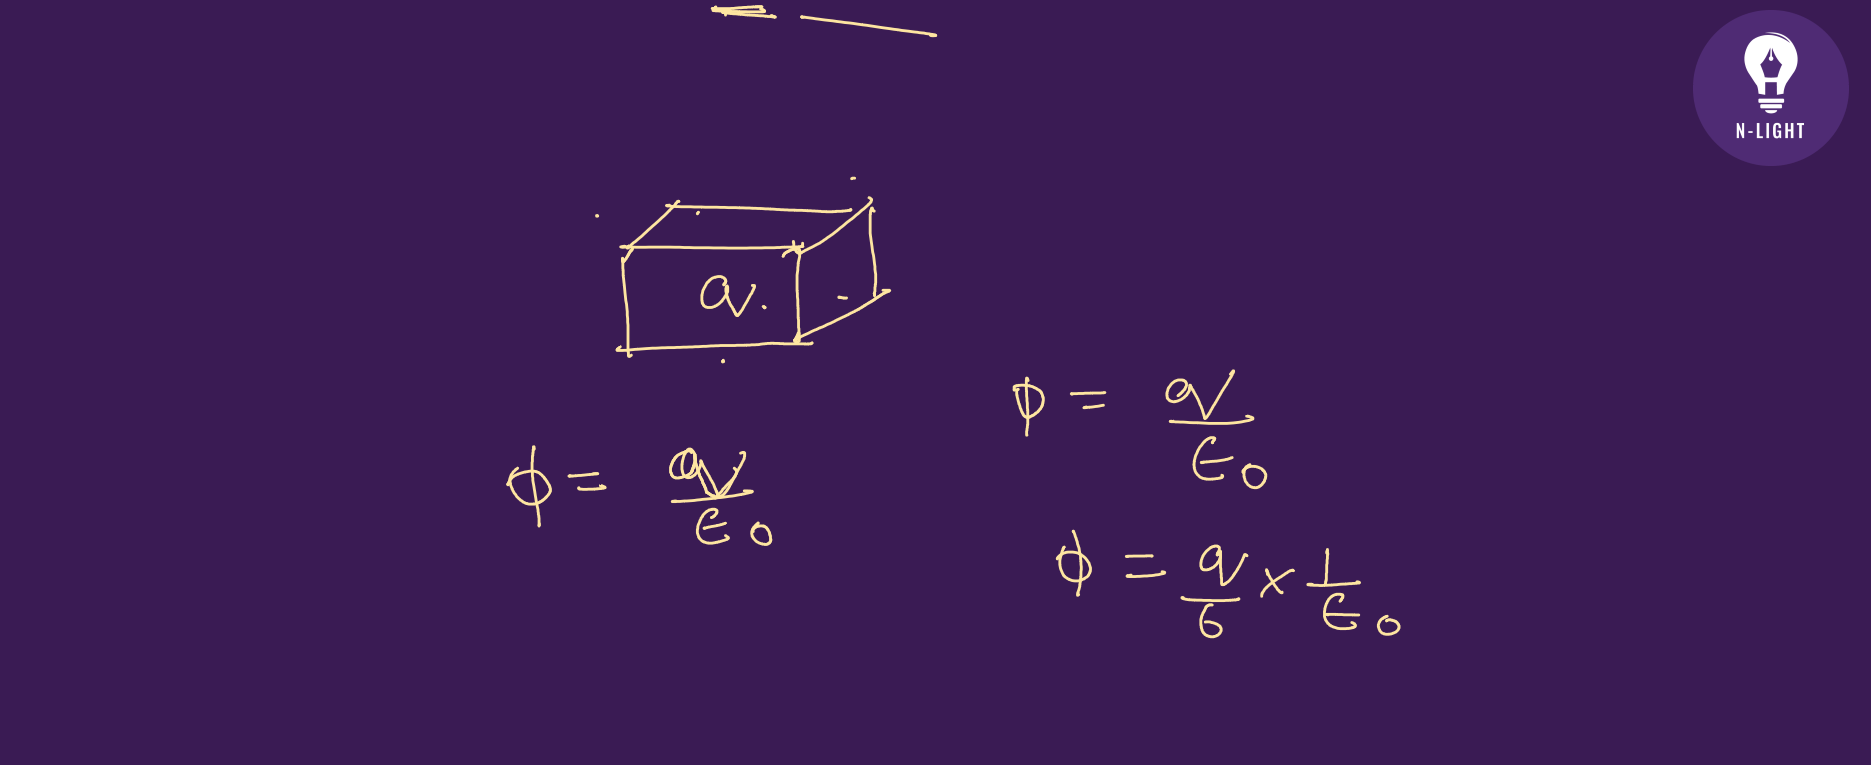 N-LIGHT
q.
ϕ = q/ϵ0
ϕ = q/ϵ0
ϕ = q/6 × 1/ϵ0